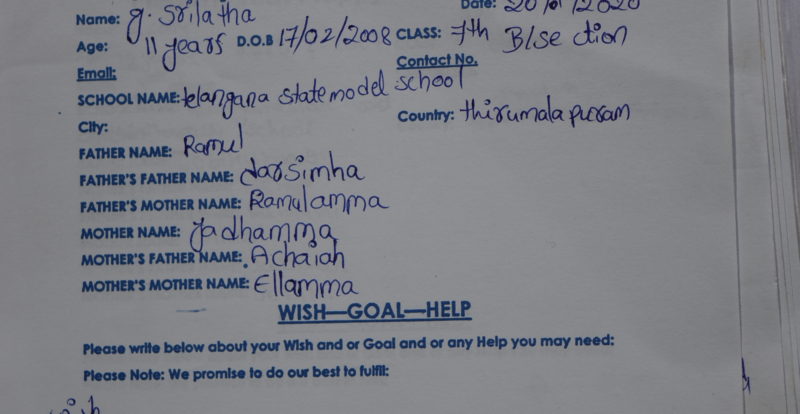 Date: 20/01/2020
Name: g. Srilatha
Age: 11 years D.O.B 17/02/2008 CLASS: 7th B/se ction
Email: Contact No.
SCHOOL NAME: telangana state model school
City: Country: thirumalapuram
FATHER NAME: Ramul
FATHER'S FATHER NAME: darsimha
FATHER'S MOTHER NAME: Ramulamma
MOTHER NAME: Jadhamma
MOTHER'S FATHER NAME: Achaiah
MOTHER'S MOTHER NAME: Ellamma
WISH—GOAL—HELP
Please write below about your Wish and or Goal and or any Help you may need:
Please Note: We promise to do our best to fulfil: